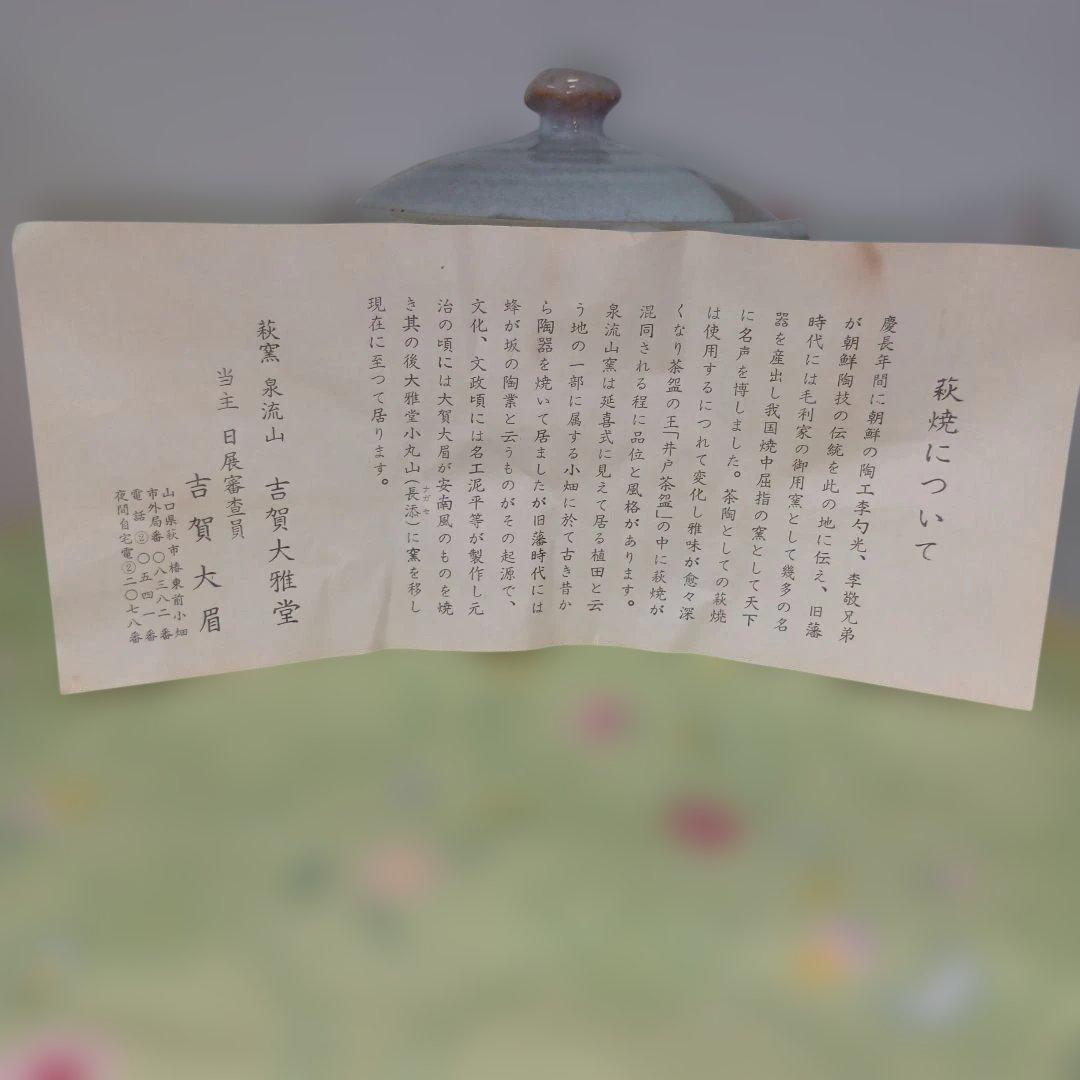 萩焼について
慶長年間に朝鮮の陶工李勺光、李敬兄弟
が朝鮮陶技の伝統を此の地に伝え、旧藩
時代には毛利家の御用窯として幾多の名
器を産出し我国焼中屈指の窯として天下
に名声を博しました。茶陶としての萩焼
は使用するにつれて変化し雅味が愈々深
くなり茶盌の王「井戸茶盌」の中に萩焼が
混同される程に品位と風格があります。
泉流山窯は延喜式に見えて居る植田と云
う地の一部に属する小畑に於て古き昔か
ら陶器を焼いて居ましたが旧藩時代には
蜂が坂の陶業と云うものがその起源で、
文化、文政頃には名工泥平等が製作し元
治の頃には大賀大眉が安南風のものを焼
き其の後大雅堂小丸山（長添）に窯を移し
ナガセ
現在に至つて居ります。
萩窯 泉流山 吉賀大雅堂
当主 日展審査員
吉賀大眉
山口県萩市椿東前小畑
市外局番〇八三八二番
電話②〇五四一番
夜間自宅電②二〇七八番